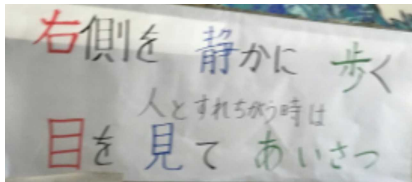 右側を 静かに 歩く
人とすれちがう時は
目を 見て あいさつ